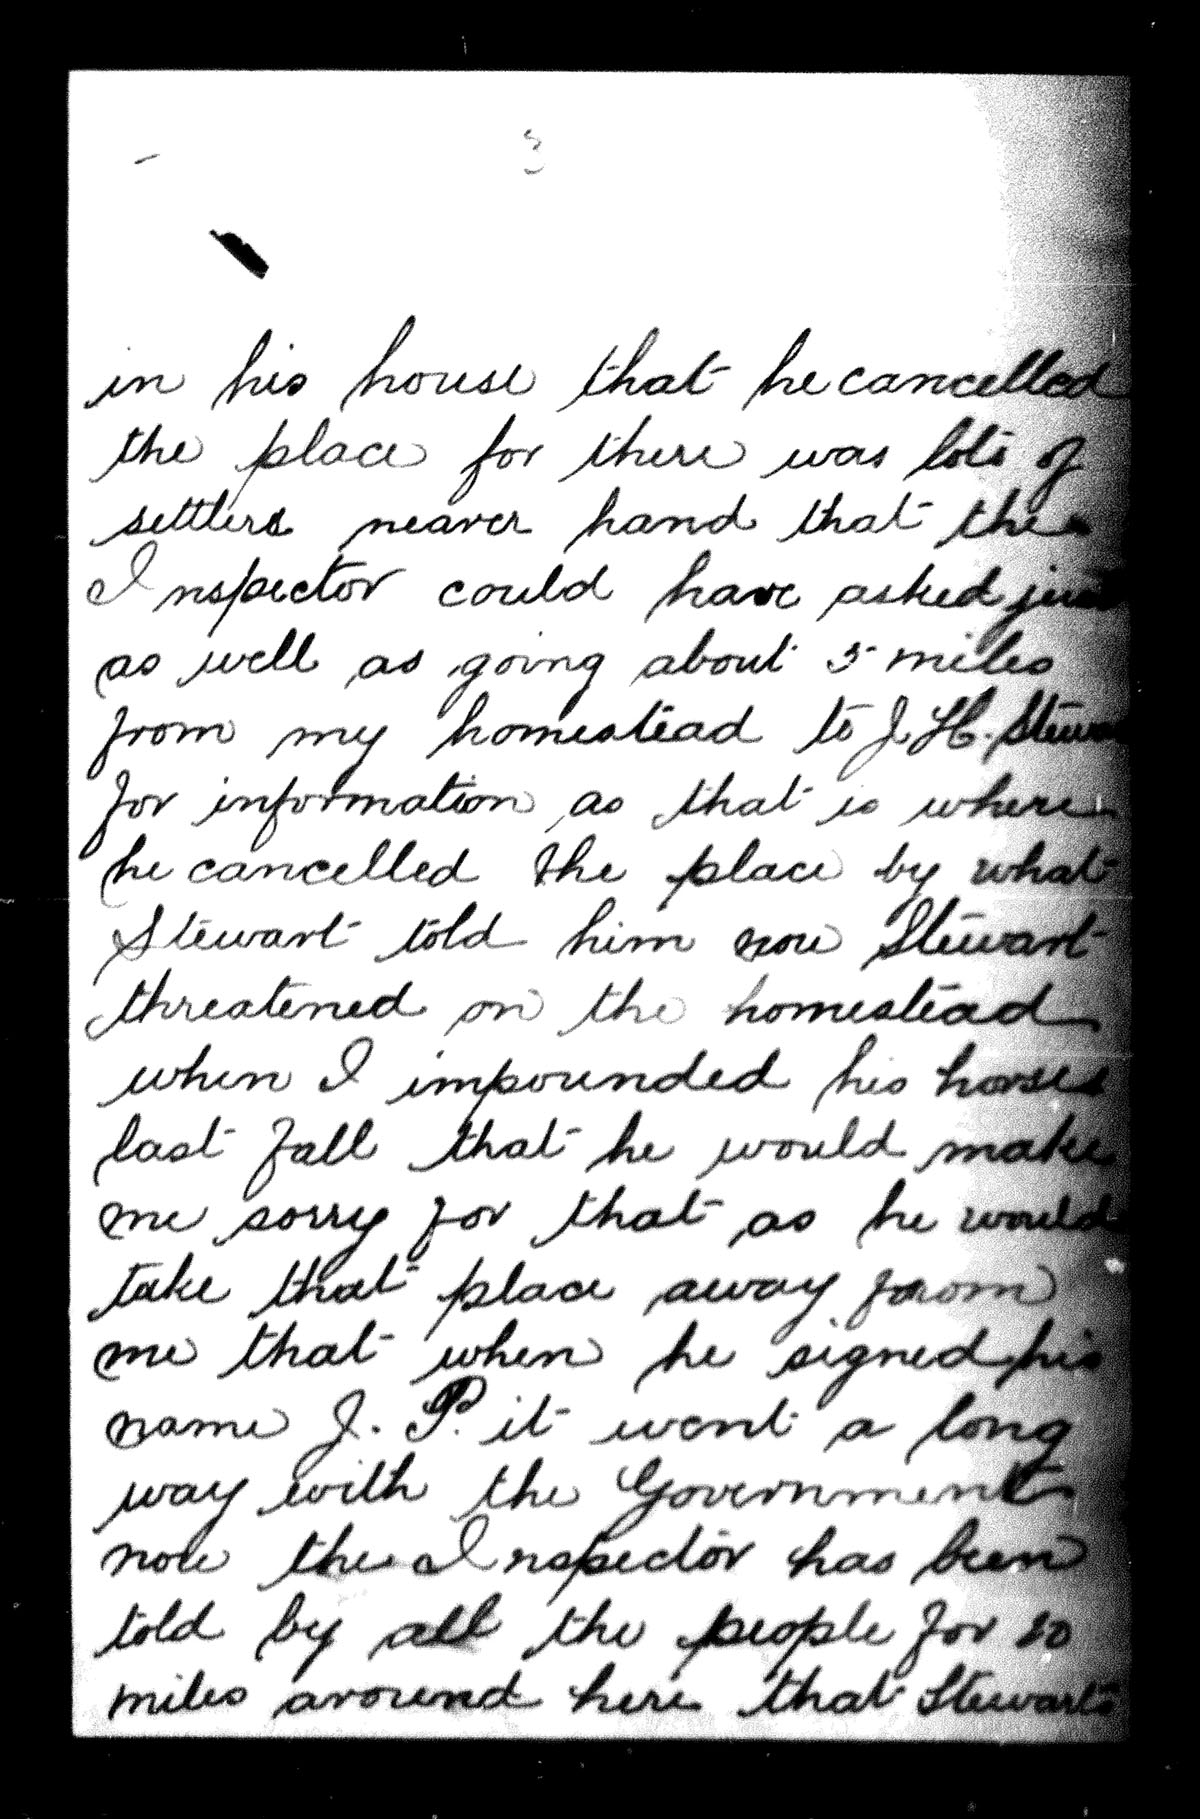 3
in his house that he cancelled
the place for there was lots of
settlers nearer hand that the
Inspector could have asked just
as well as going about 5 miles
from my homestead to J. H. Stewart
for information as that is where
he cancelled the place by what
Stewart told him now Stewart
threatened on the homestead
when I impounded his horses
last fall that he would make
me sorry for that as he would
take that place away from
me that when he signed his
name J. P. it went a long
way with the Government
now the Inspector has been
told by all the people for 20
miles around here that Stewarts